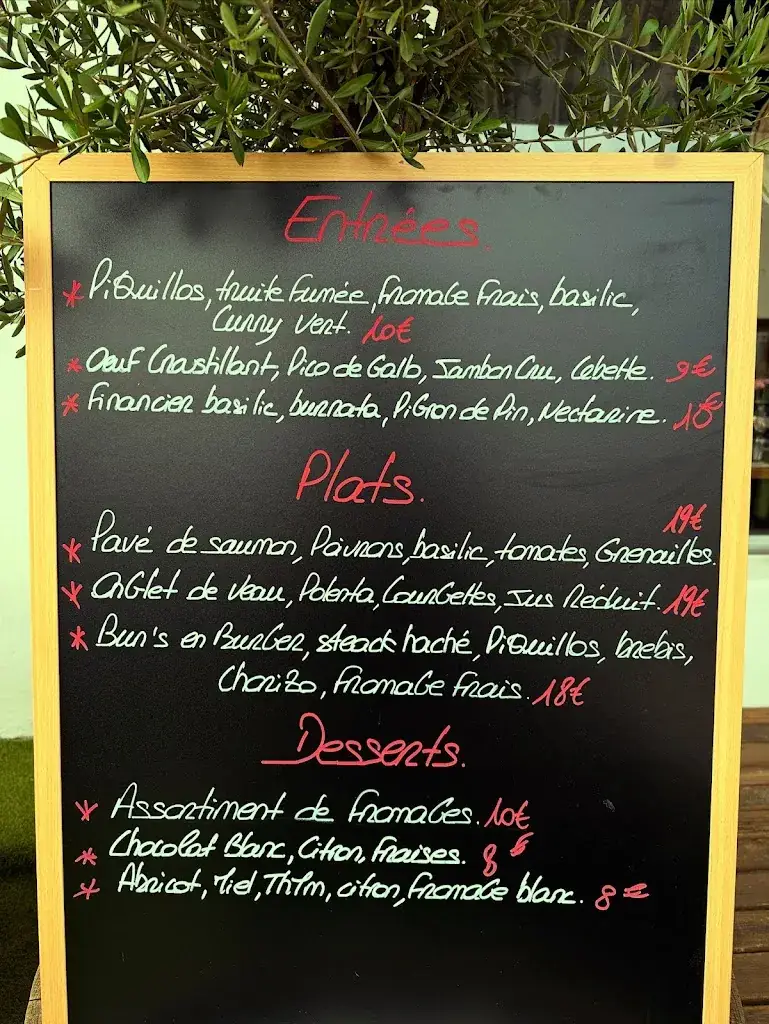 Entrées.
* Piquillos, truite fumée, fromage frais, basilic,
Curry vert. 10€
* Oeuf Croustillant, Pico de Gallo, Jambon Cru, Cebette. 9€
* Financier basilic, burrata, Pignon de Pin, Nectarine. 10€
Plats.
19€
* Pavé de saumon, Poivrons, basilic, tomates, Grenailles.
* Onglet de Veau, Polenta, Courgettes, Jus Réduit. 19€
* Bun's en Burger, steack haché, Piquillos, brebis,
Chorizo, fromage frais. 18€
Desserts.
* Assortiment de fromages. 10€
* Chocolat Blanc, Citron, fraises. 8€
* Abricot, Miel, Thym, citron, fromage blanc. 8€